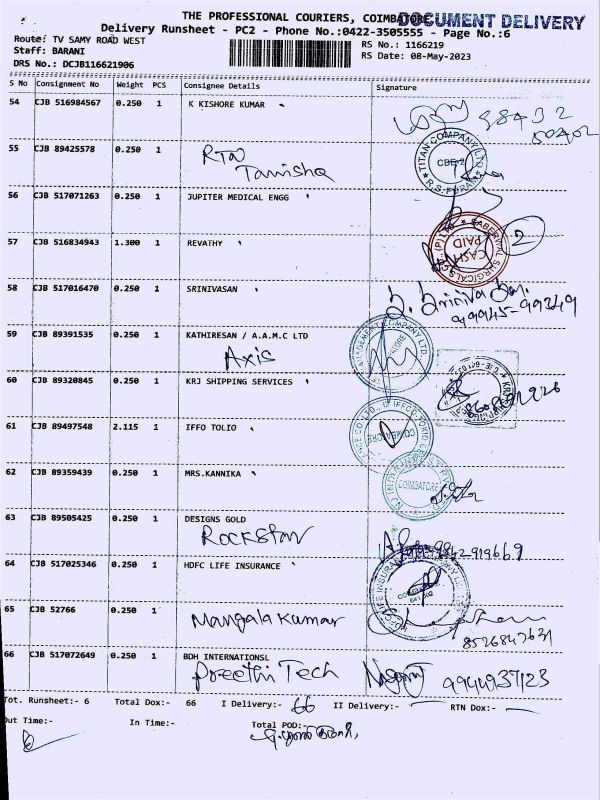 THE PROFESSIONAL COURIERS, COIMBATORE
DOCUMENT DELIVERY
Delivery Runsheet - PC2 - Phone No.:0422-3505555 - Page No.:6
Route: TV SAMY ROAD WEST
RS No.: 1166219
Staff: BARANI
RS Date: 08-May-2023
DRS No.: DCJB116621906
S No Consignment No Weight PCS Consignee Details Signature
54 CJB 516984567 0.250 1 K KISHORE KUMAR
55 CJB 89425578 0.250 1
RTN
Tanishq
TITAN COMPANY LTD
CBE-2
R.S. PURAM
56 CJB 517071263 0.250 1 JUPITER MEDICAL ENGG
57 CJB 516834943 1.300 1 REVATHY
SABERWAL SURGICALS (P) LTD
CASH PAID
2
58 CJB 517016470 0.250 1 SRINIVASAN
99945-99349
59 CJB 89391535 0.250 1 KATHIRESAN / A.A.M.C LTD
Axis
60 CJB 89320845 0.250 1 KRJ SHIPPING SERVICES
61 CJB 89497548 2.115 1 IFFO TOLIO
COIMBATORE
62 CJB 89359439 0.250 1 MRS.KANNIKA
COIMBATORE
63 CJB 89505425 0.250 1 DESIGNS GOLD
Rockstar
64 CJB 517025346 0.250 1 HDFC LIFE INSURANCE
65 CJB 52766 0.250 1
Mangala Kumar
8526847631
66 CJB 517072649 0.250 1 BDH INTERNATIONSL
Preethi Tech
9944937123
Tot. Runsheet:- 6 Total Dox:- 66 I Delivery:- 66 II Delivery:- RTN Dox:-
Out Time:- In Time:- Total POD:-